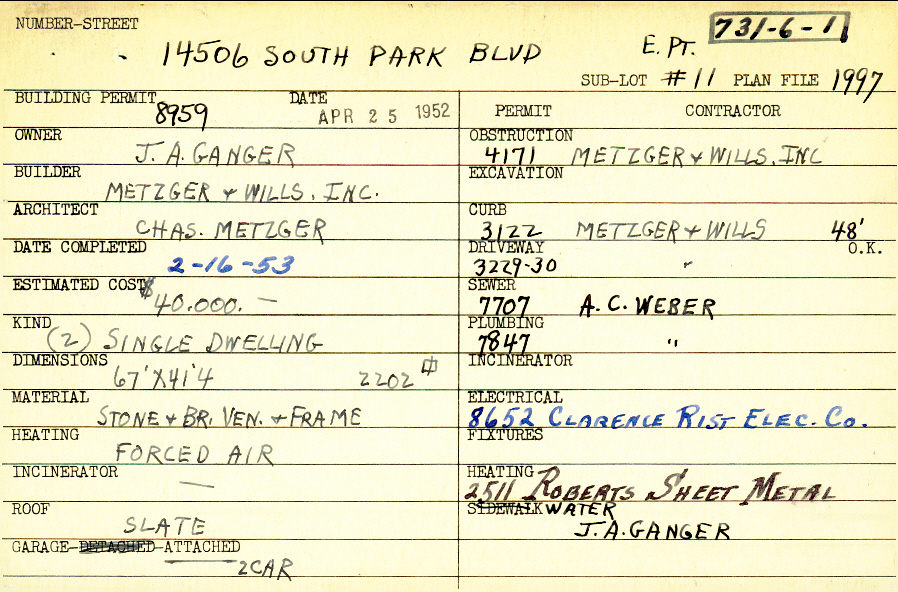 NUMBER-STREET
14506 SOUTH PARK BLVD E. PT. 731-6-1
SUB-LOT #11 PLAN FILE 1997
BUILDING PERMIT 8959 DATE APR 25 1952
PERMIT CONTRACTOR
OWNER J. A. GANGER
OBSTRUCTION 4171 METZGER & WILLS, INC
BUILDER METZGER & WILLS, INC.
EXCAVATION
ARCHITECT CHAS. METZGER
CURB 3122 METZGER & WILLS 48' O.K.
DATE COMPLETED 2-16-53
DRIVEWAY 3229-30 "
ESTIMATED COST $40.000. —
SEWER 7707 A. C. WEBER
KIND (2) SINGLE DWELLING
PLUMBING 7847 "
DIMENSIONS 67' X 41'4 2202
INCINERATOR
MATERIAL STONE & BR. VEN. & FRAME
ELECTRICAL 8652 CLARENCE RIST ELEC. CO.
HEATING FORCED AIR
FIXTURES
INCINERATOR —
HEATING 2511 ROBERTS SHEET METAL
ROOF SLATE
SIDEWALK WATER J. A. GANGER
GARAGE-DETACHED-ATTACHED
2 CAR